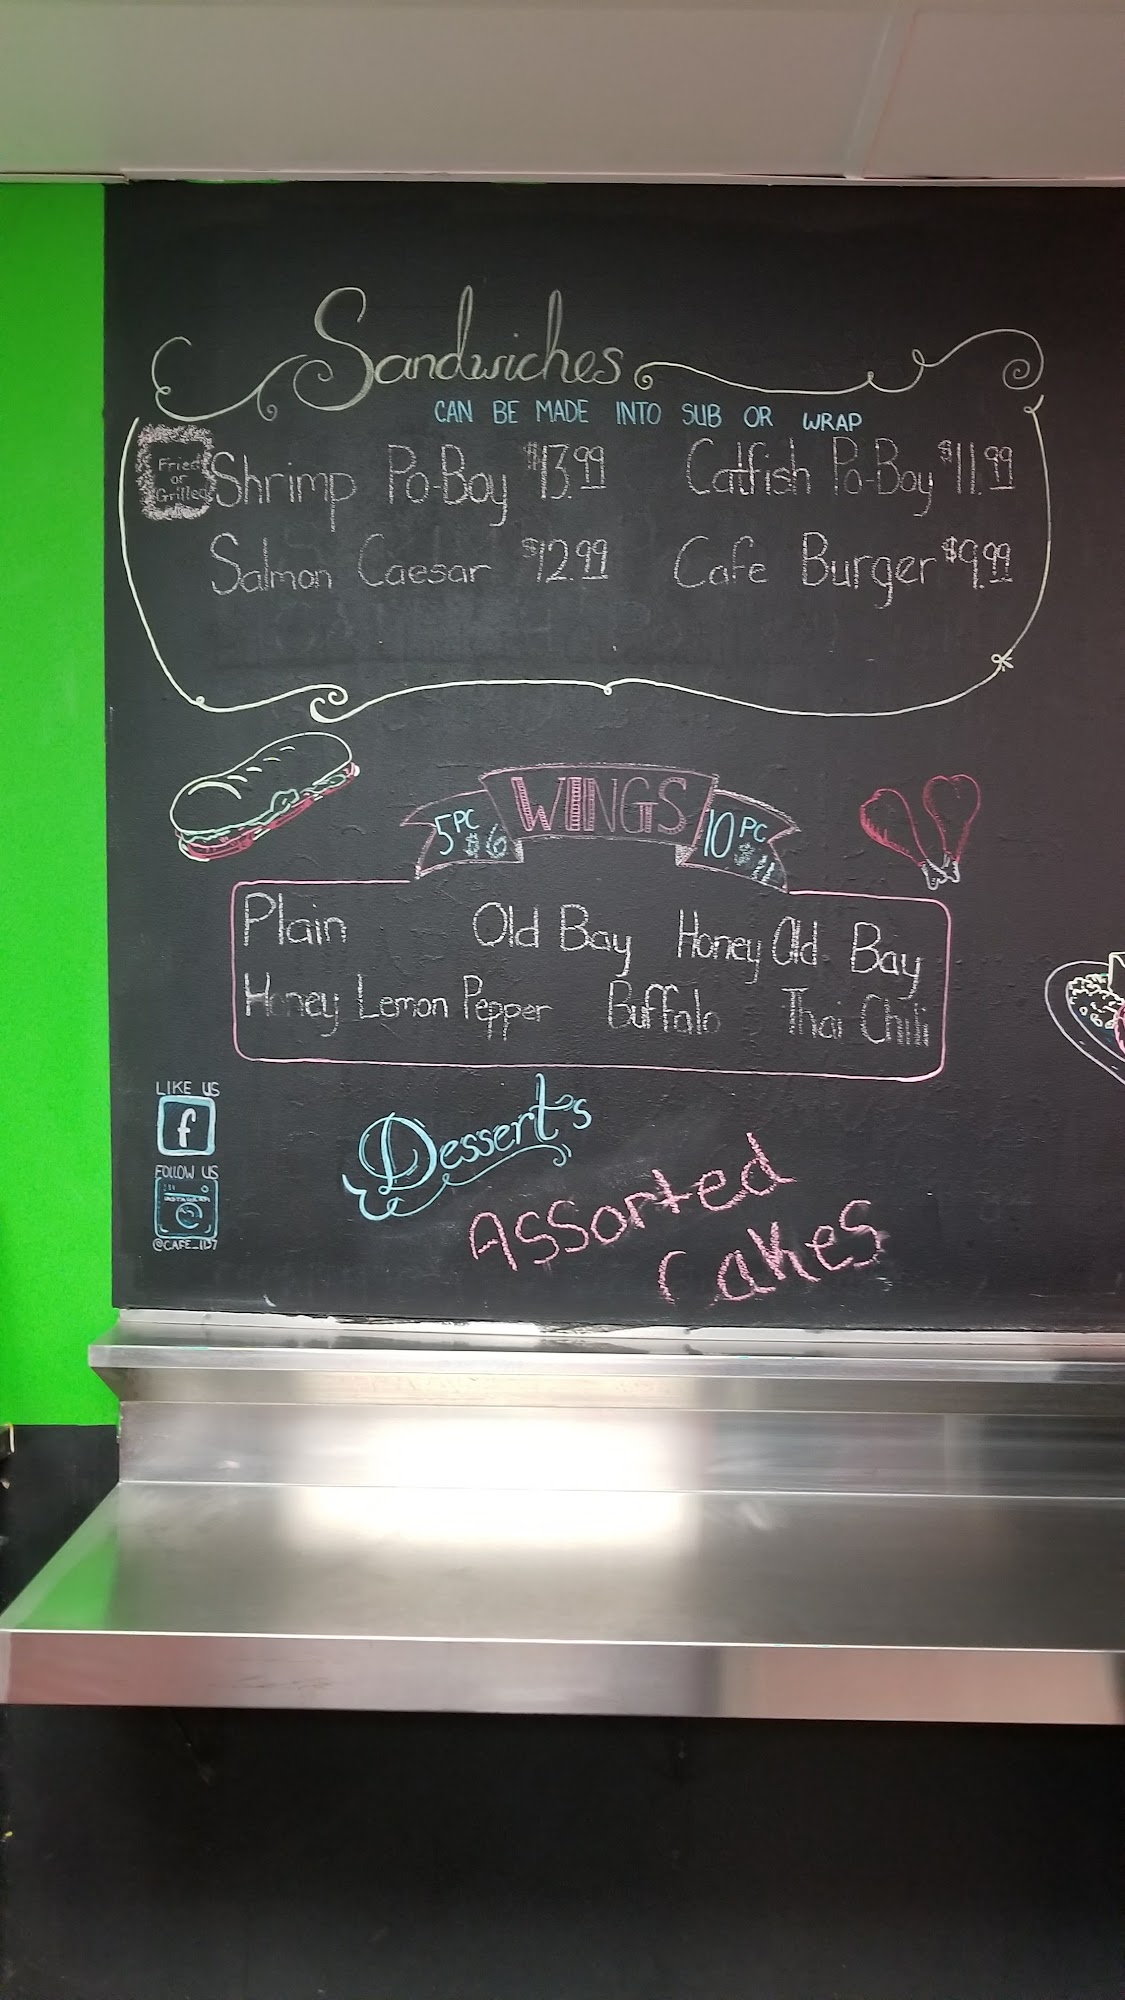 Sandwiches
CAN BE MADE INTO SUB OR WRAP
Fried
or
Grilled
Shrimp Po-Boy $13.99 Catfish Po-Boy $11.99
Salmon Caesar $12.99 Cafe Burger $9.99
WINGS
5PC $6
10PC $11
Plain Old Bay Honey Old Bay
Honey Lemon Pepper Buffalo Thai Chili
LIKE US
f
FOLLOW US
INSTAGRAM
@CAFE_1137
Dessert's
Assorted
Cakes